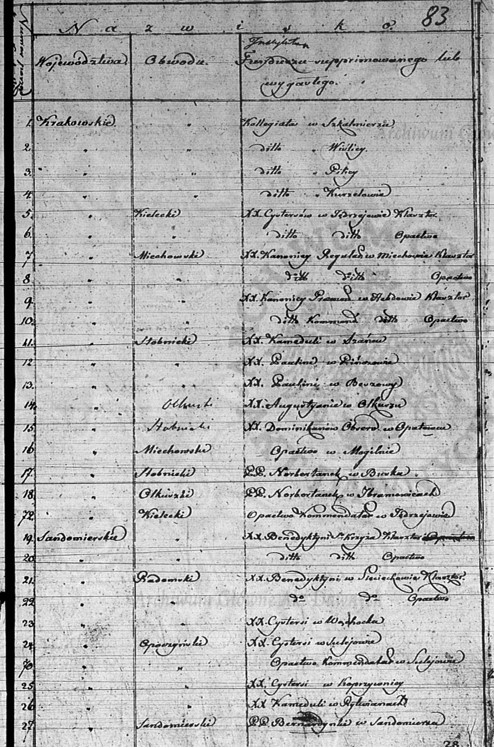 83
Nazwisko
Województwa Obwodu Instytutu
Funduszu supprimowanego lub
wygasłego.
1. Krakowskie " Kollegiata w Szkalmierzu
2. " " ditto " Wiślicy
3. " " ditto " Pilicy
4. " " ditto " Kurzelowie
5. " Kielecki XX. Cystersów w Jędrzejowie Klasztor
6. " " ditto ditto Opactwo
7. " Miechowski XX. Kanonicy Regular w Miechowie Klasztor
8. " " ditto ditto Opactwo
9. " " XX. Kanonicy w Klasztor
10. " " ditto Kommend ditto Opactwo
11. " Stobnicki XX. Kameduli w Szańcu
12. " " XX. Paulinów w Pińczowie
13. " " XX. Paulini w Beszowy
14. " Olkusk XX. Augustyanie w Olkuszu
15. " Stobnicki XX. Dominikanów Obserw. w Opatowcu
16. " Miechowski Opactwo w Mogilnie
17. " Stobnicki PP. Norbertanek w Busku
18. " Olkuszki PP. Norbertanek w Imbramowicach
72. " Kielecki Opactwo Kommendatar w Jędrzejowie
19. Sandomierskie " XX. Benedyktyni S. Krzyża Klasztor
20. " " ditto ditto Opactwo
21. " Radomski XX. Benedyktyni w Sieciechowie Klasztor
22. " " do do Opactwo
23. " " XX. Cystersi w Wąchocku
24. " Opoczyński XX. Cystersi w Sulejowie
73. " " Opactwo Kommendatar w Sulejowie
25. " " XX. Cystersi w Koprzywnicy
26. " " XX. Kameduli w Rytwianach
27. " Sandomierski PP. Bernardynki w Sandomierzu